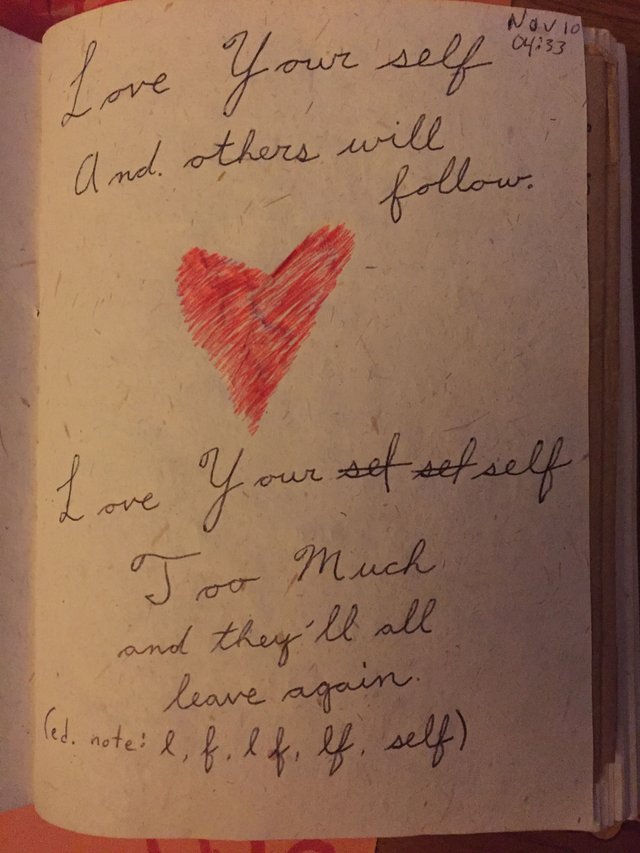 Nov 10
04:33
Love Your self
And. others will
follow.
Love Your sel sel self
Too Much
and they'll all
leave again.
(ed. note: l, f, l f, lf, self)